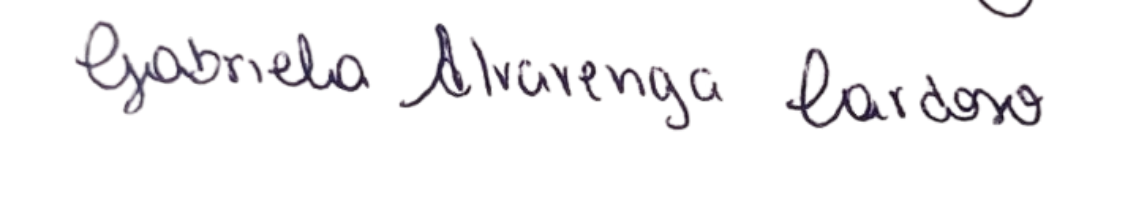 Gabriela Alvarenga Cardoso